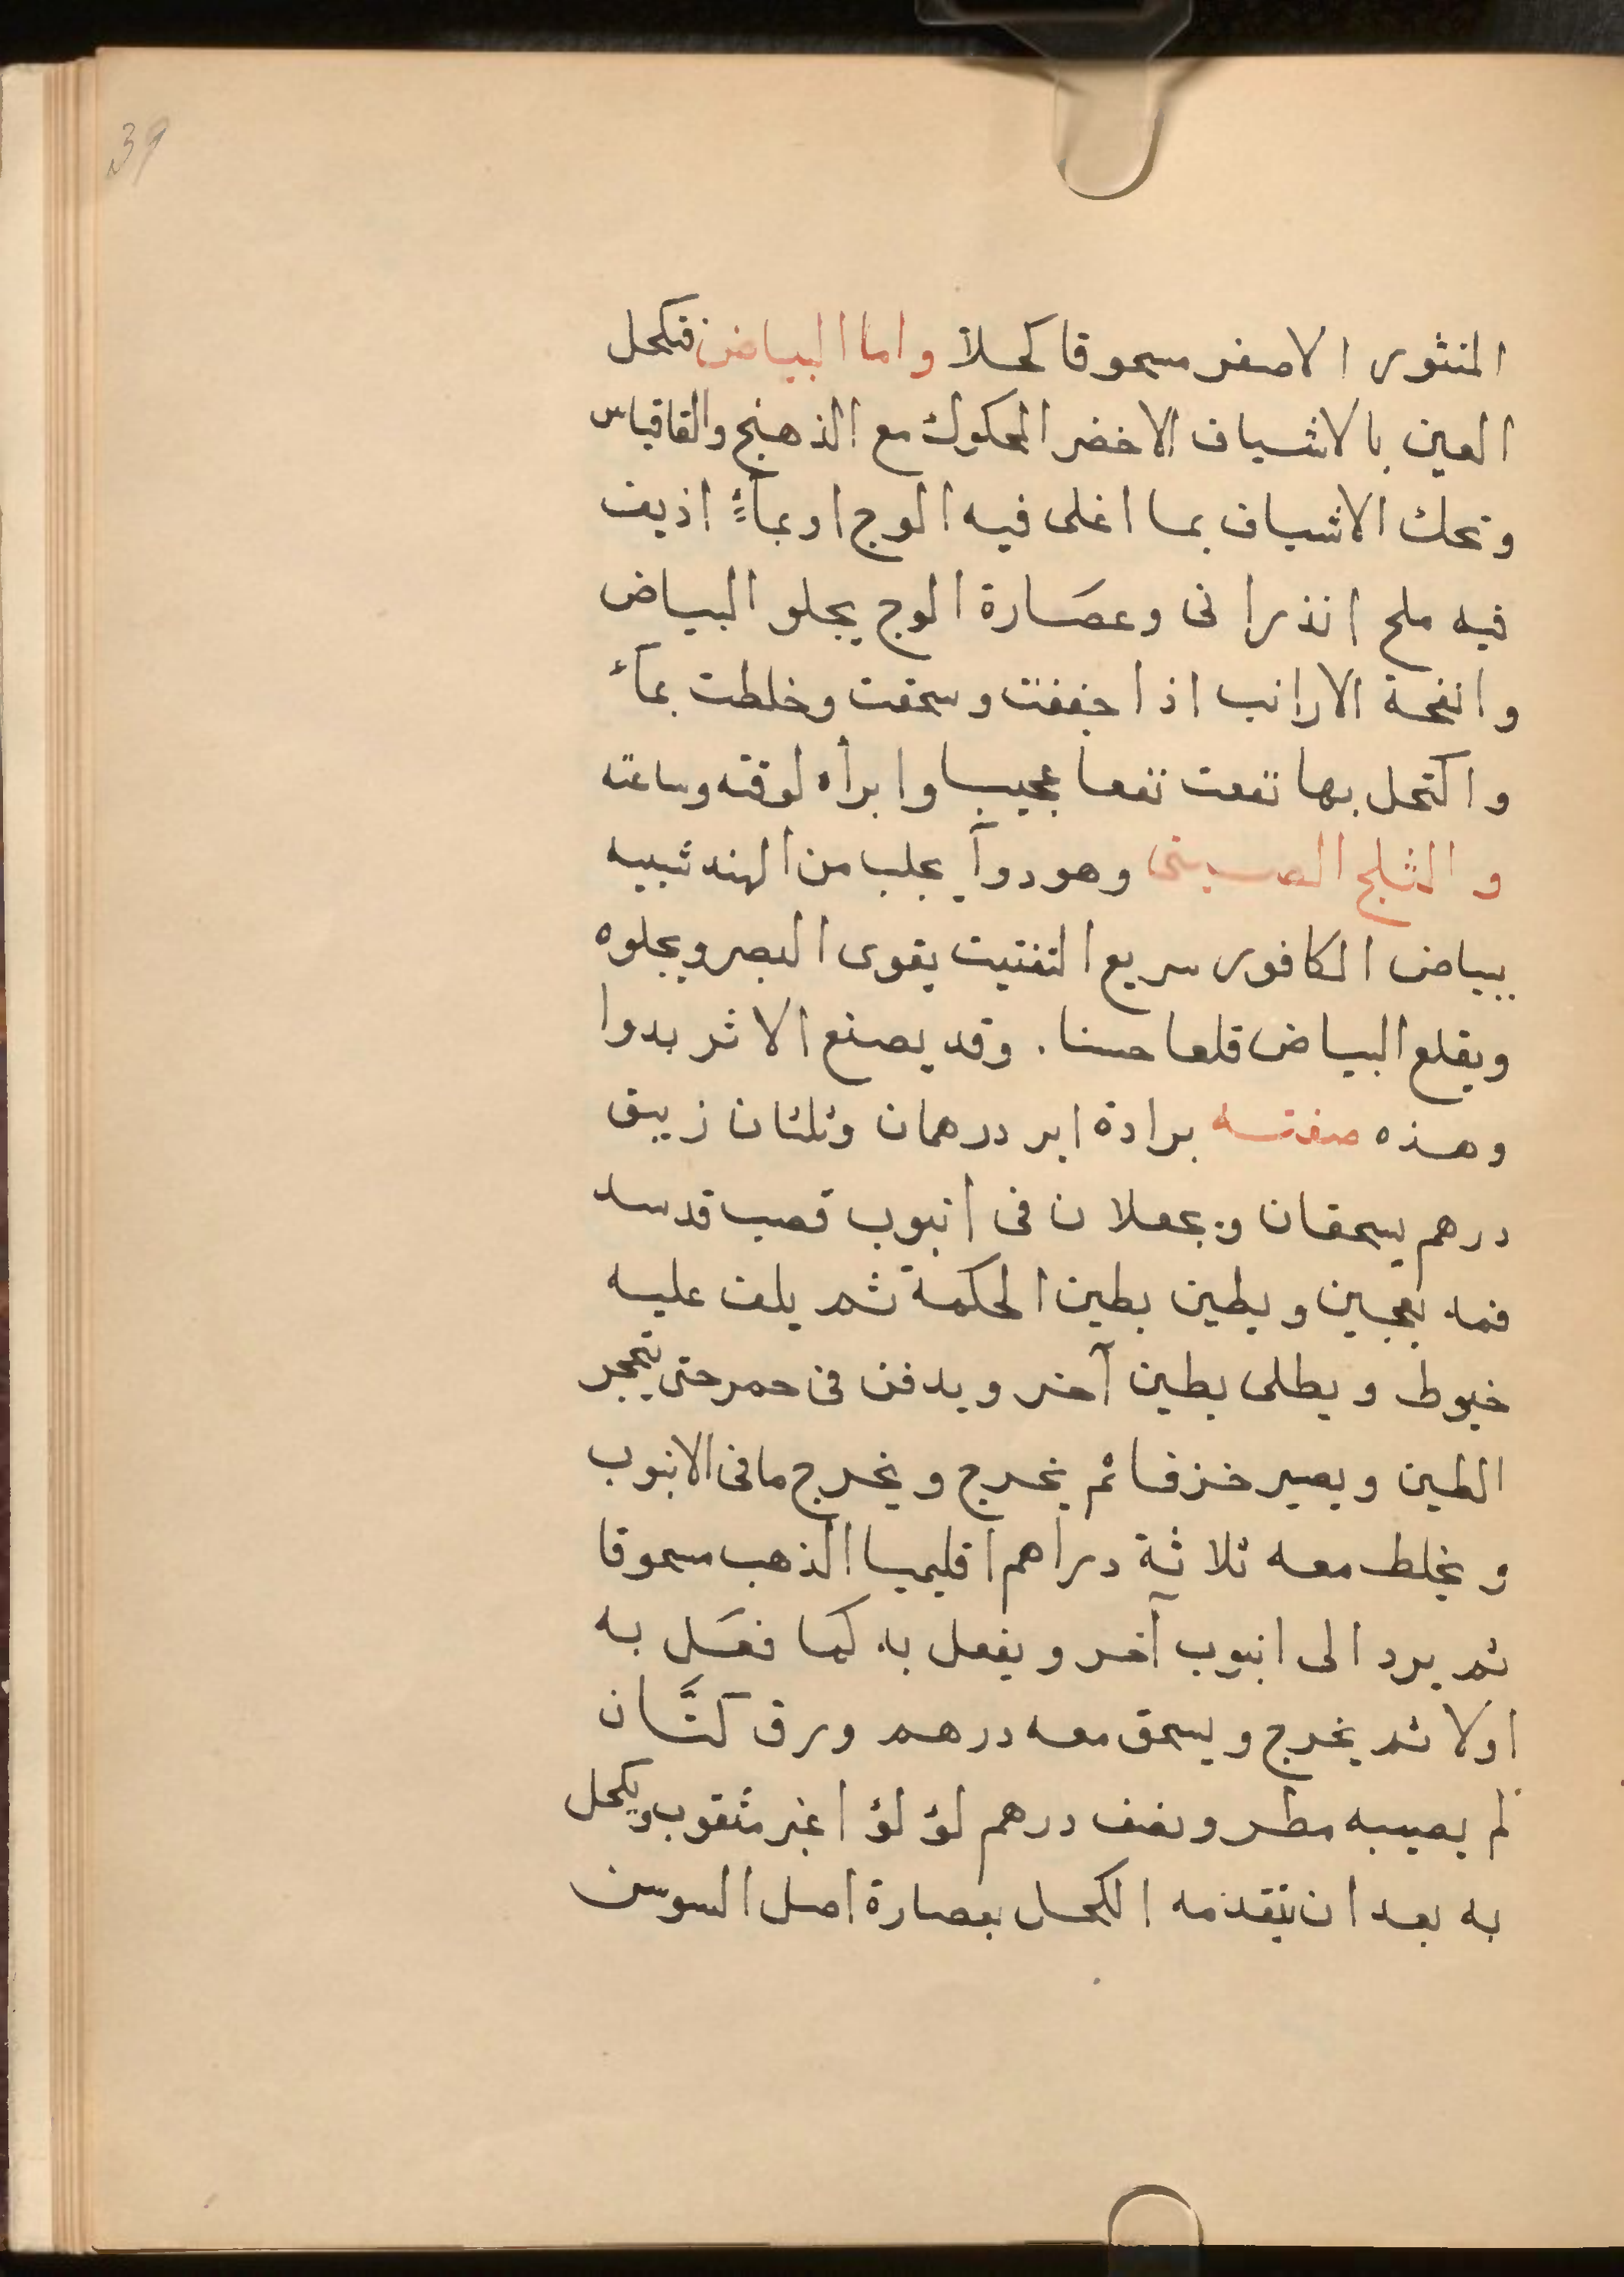 39
المنثور الاصفر مسحوقا كحلا واما البياض فتكحل
العين بالاشياف الاخضر المحكوك مع الذهنج والقاقياس
وتحك الاشياف بما اغلى فيه الوج او بمآءً اذيف
فيه ملح انذرانى وعصَارة الوج يجلو البياض
وانفحة الارانب اذا جففت وسحقت وخلطت بمآء
واكتحل بها نفعت نفعا عجيبا وابرأه لوقته وساعته
والثلج الصينى وهو دوآ يجلب من الهند شبيه
ببياض الكافور سريع التفتيت يقوى البصر ويجلوه
ويقلع البياض قلعا حسنا. وقد يصنع الاثر بدوا
وهذه صفته برادة ابر درهمان وثلثان زيبق
درهم يسحقان ويجعلان فى انبوب قصب قد سد
فمه بعجين ويطين بطين الحكمة ثم يلف عليه
خيوط ويطلى بطين آخر ويدفن فى جمر حتى يتحجر
الطين ويصير خزفا ثم يخرج ويخرج ما فى الانبوب
ويخلط معه ثلاثة دراهم اقليميا الذهب مسحوقا
ثم يرد الى انبوب آخر ويفعل به كما فعَل به
اولا ثم يخرج ويسحق معه درهم ورق كتَّان
لم يصيبه مطر ونصف درهم لؤلؤ اغير مثقوب ويكحل
به بعد ان يتقدمه الكحل بعصارة اصل السوسن